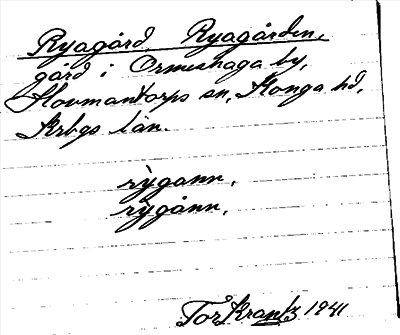 Ryagård, Ryagården,
gård i Ormeshaga by,
Hovmantorps sn, Konga hd,
Krbgs län.
rỳgann,
rỳgånn,
Tor Krantz 1941